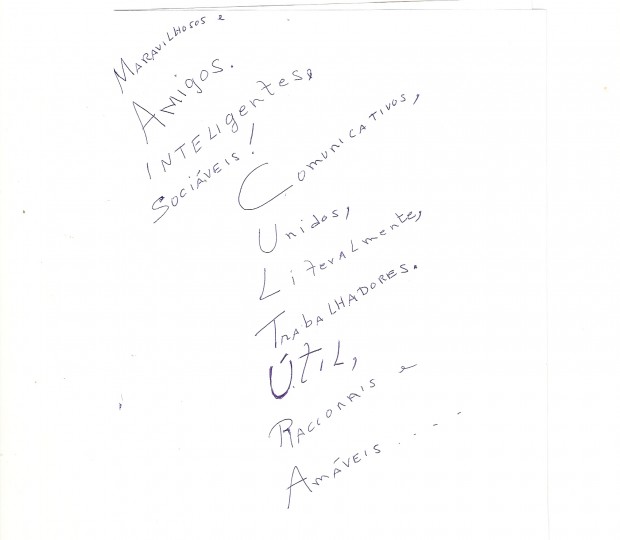 MARAVILHOSOS e
Amigos.
INTELigentes,
SOCIÁVEIS!
COMUNICATIVOS,
Unidos,
LiteralMente,
TRAbALHADORES.
ÚTIL,
RACIONAIS e
AMÁVEIS.....